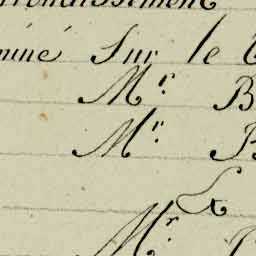 rondissement
miné Sur le
Mr. B
Mr.
&
Mr.